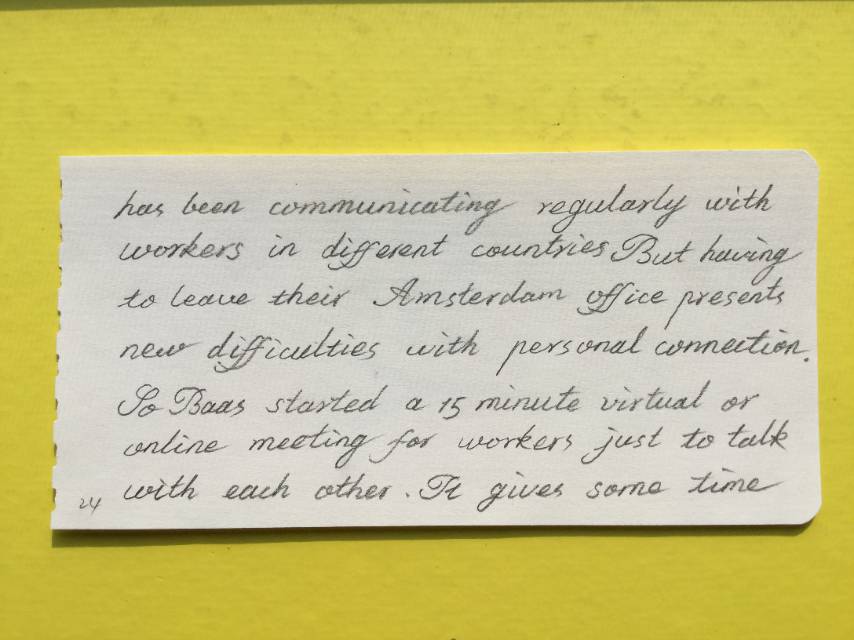 has been communicating regularly with
workers in different countries But having
to leave their Amsterdam office presents
new difficulties with personal connection.
So Baas started a 15 minute virtual or
online meeting for workers just to talk
with each other. It gives some time
24